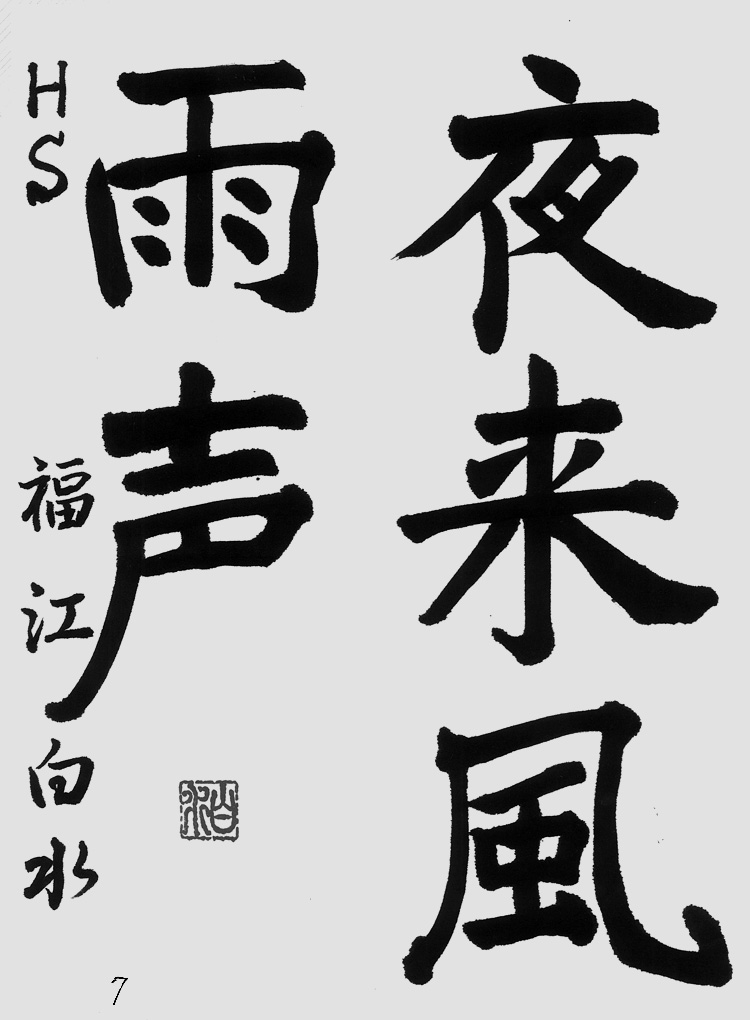 夜来風
雨声
HS
福江白水
白水
7